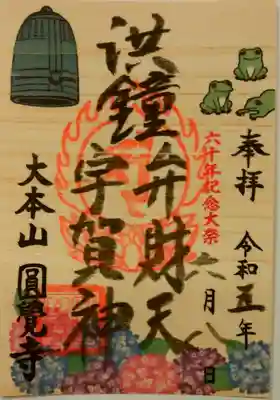 奉拝
令和五年
六月八日
六十年記念大祭
洪鐘弁財天
宇賀神
大本山
圓覺寺